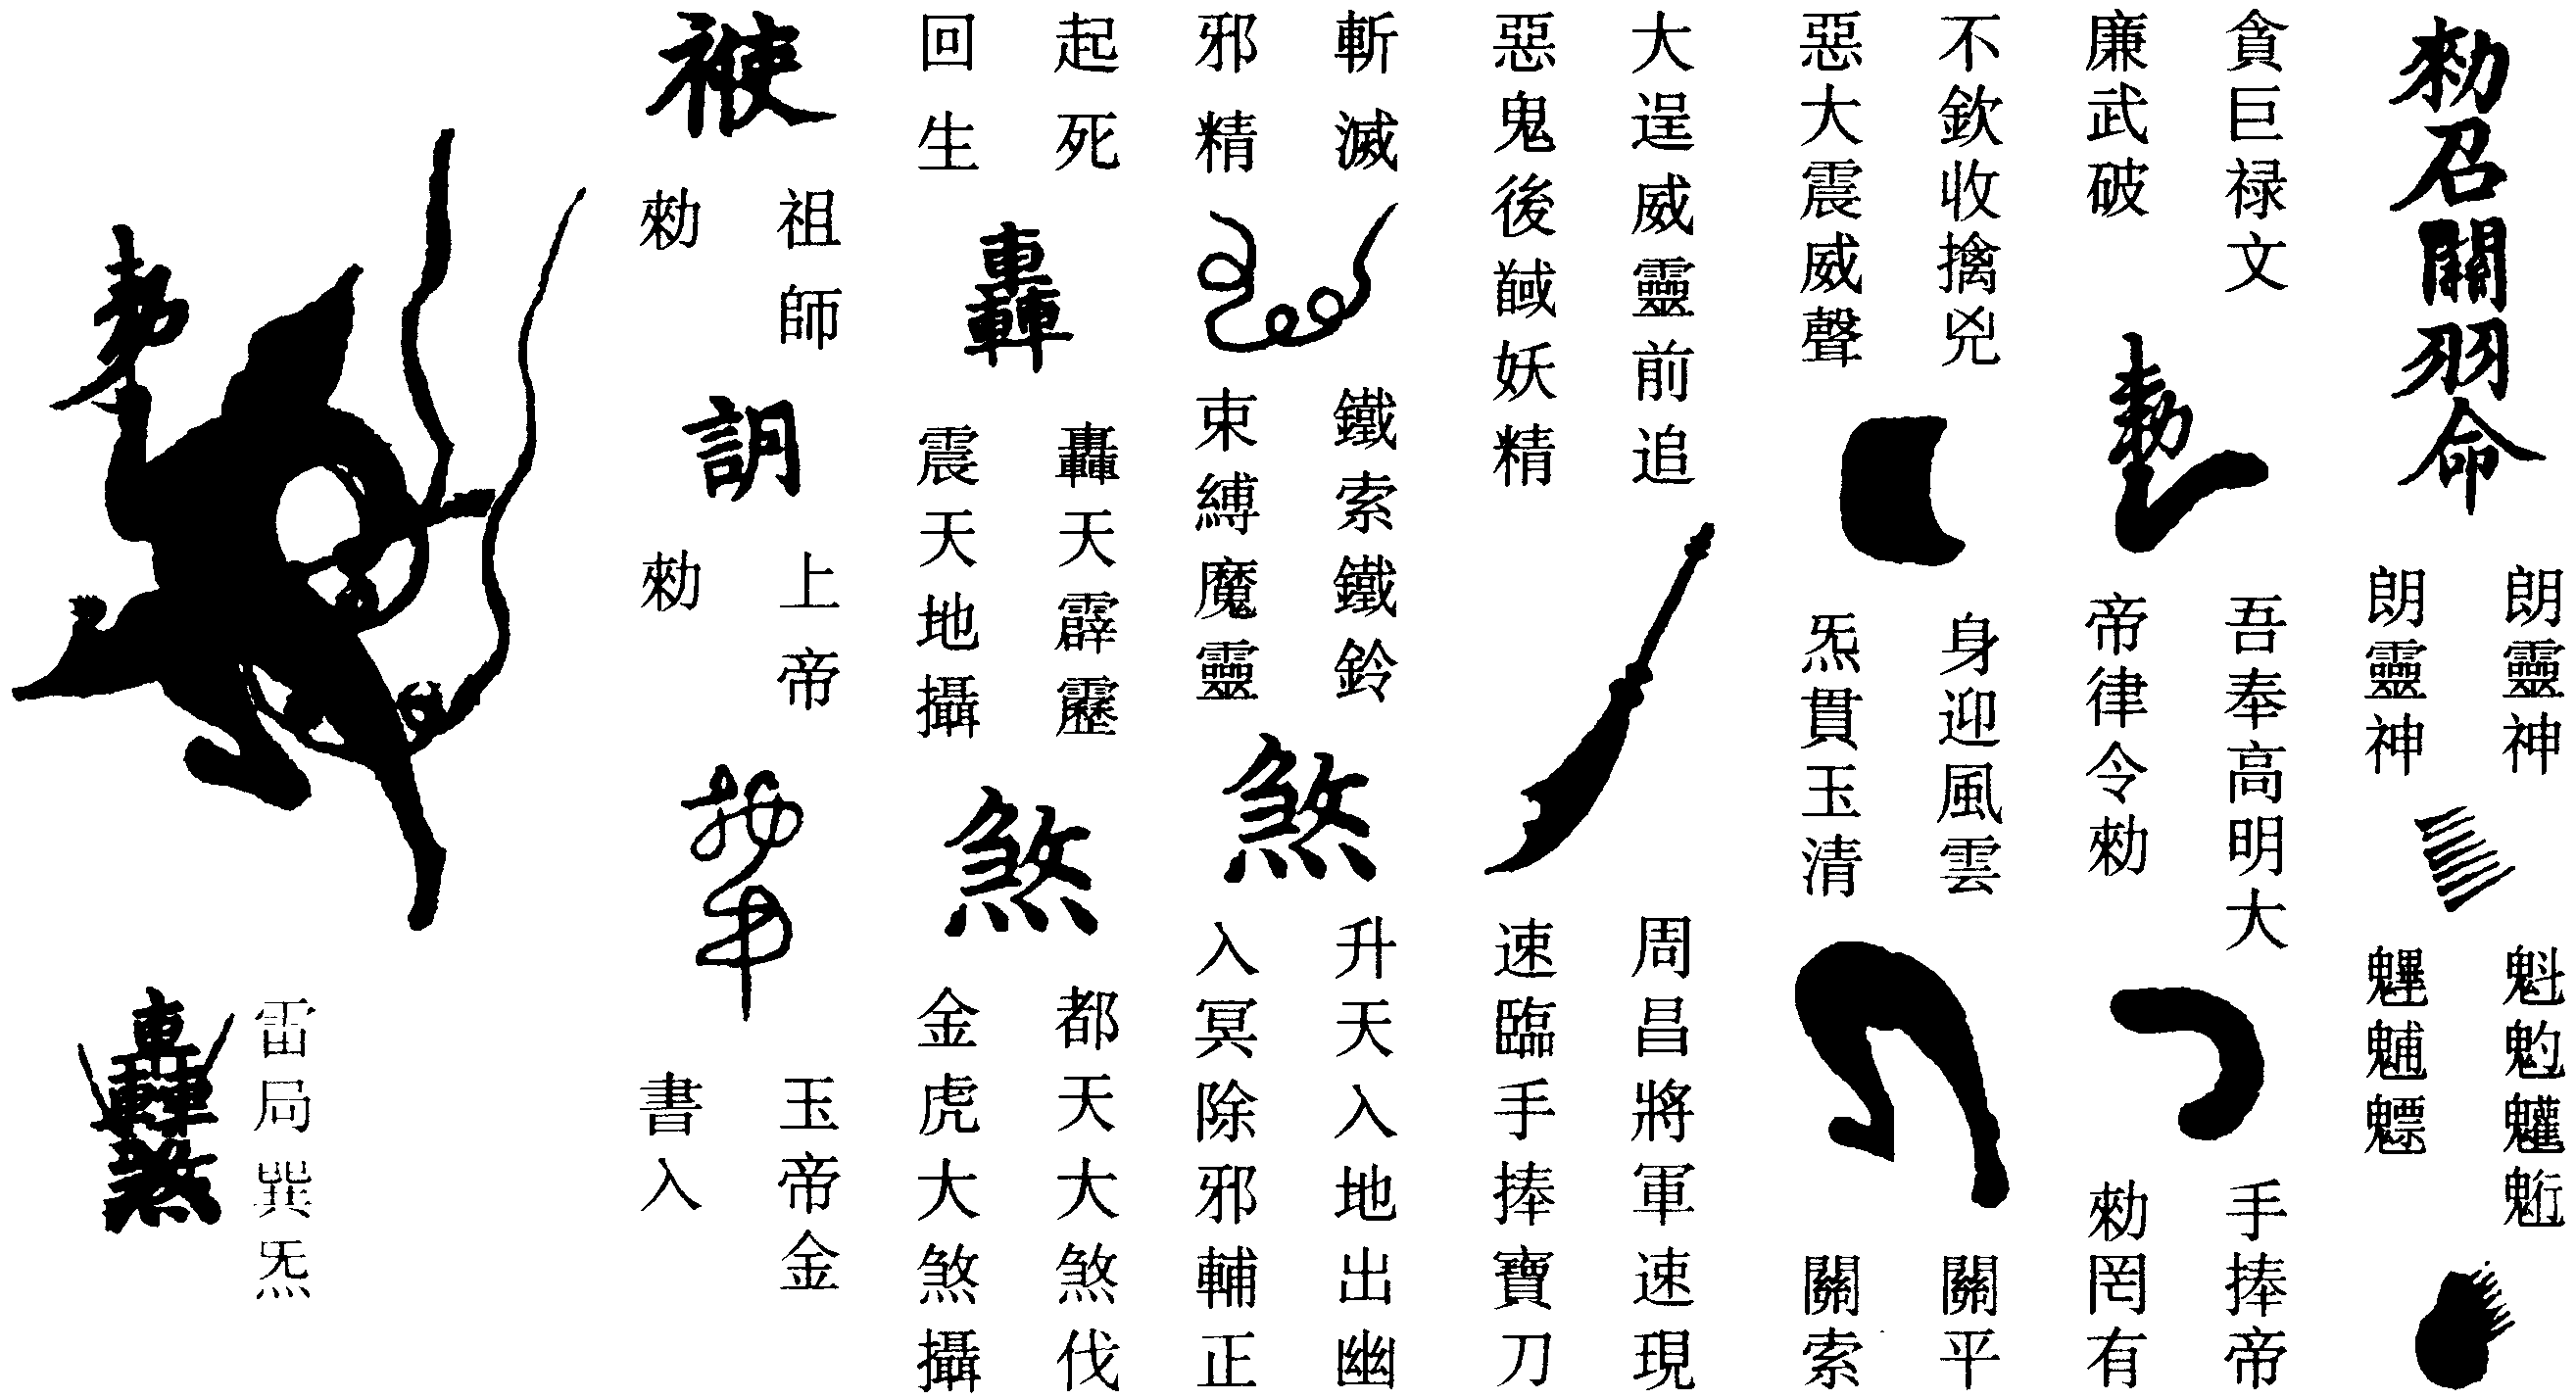 勑召關羽命
朗靈神
朗靈神
魁𩲃𩵄䰢
魓𩳐魒
貪巨禄文
廉武破
勑
吾奉高明大
帝律令勑
手捧帝
勑罔有
不欽收擒兇
惡大震威聲
身迎風雲
炁貫玉清
關平
關索
大逞威靈前追
惡鬼後馘妖精
周昌將軍速現
速臨手捧寶刀
斬滅
邪精
鐵索鐵鈴
束縛魔靈
煞
升天入地出幽
入冥除邪輔正
起死
回生
轟
轟天霹靂
震天地攝
煞
都天大煞伐
金虎大煞攝
祖師
勑
上帝
勑
玉帝金
書入
勑
雷局巽炁
轟煞